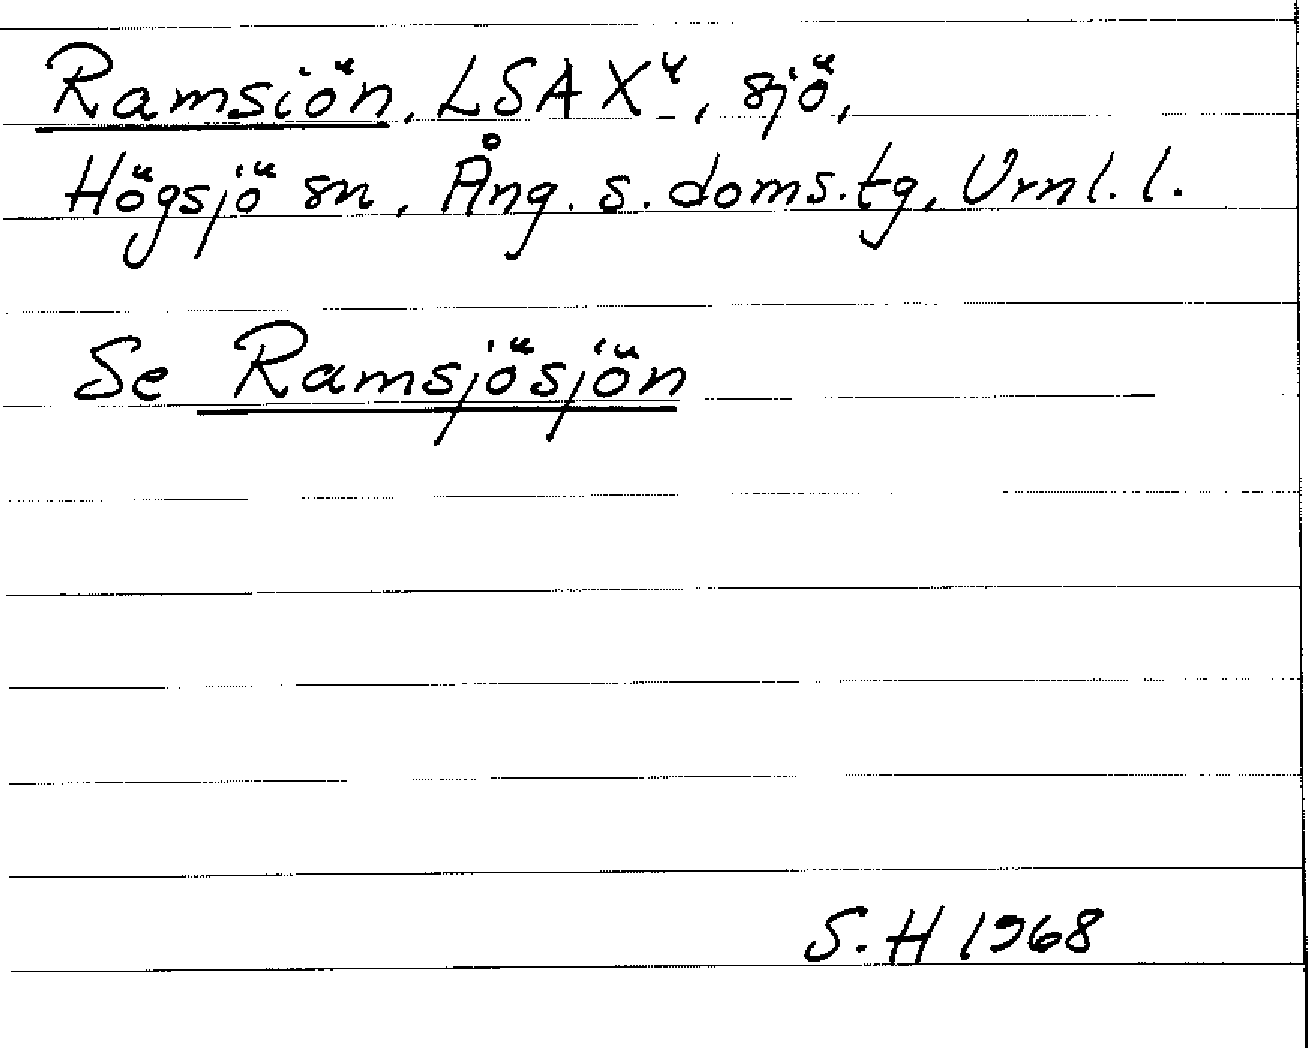 Ramsiön, LSA X⁴, sjö,
Högsjö sn, Ång. s. doms.tg, Vrnl. l.
Se Ramsjösjön
S.H 1968